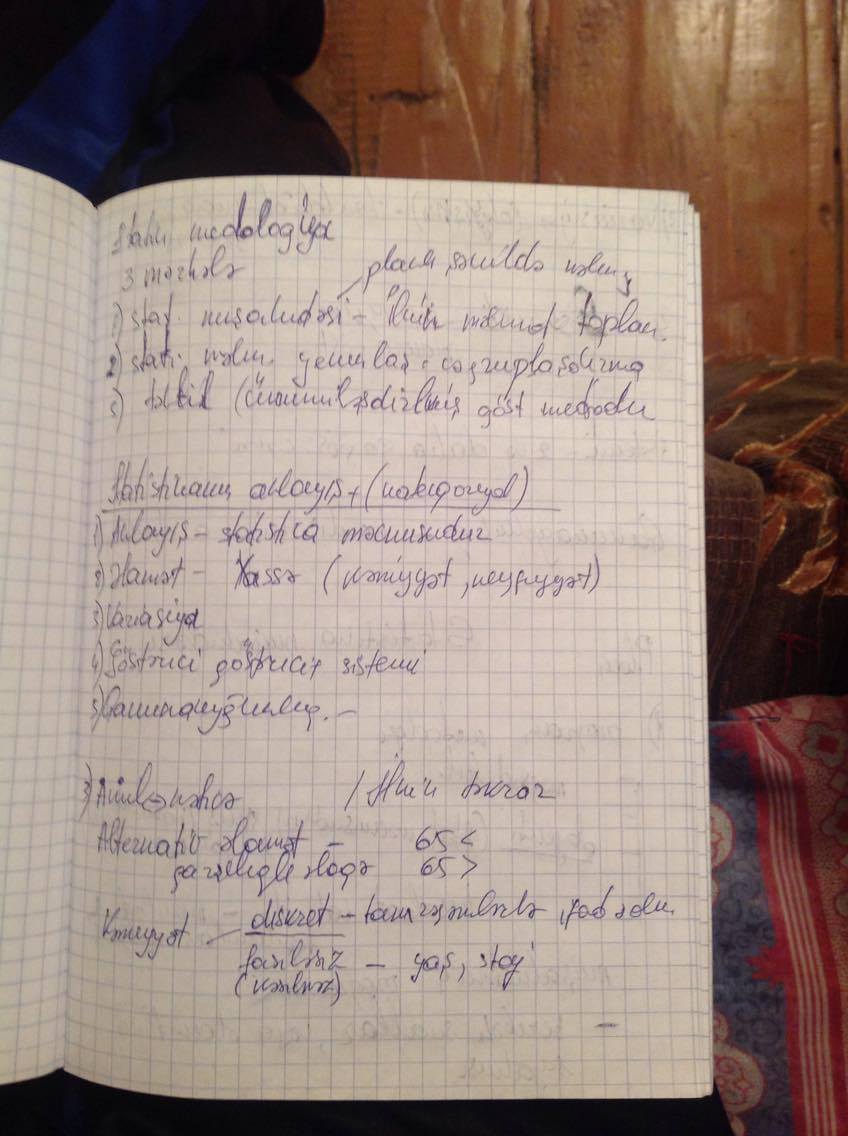 Stati. medologiya
3 mərhələ
planlı şəkildə məlum
1) stat. muşahidəsi – İlkin məlumat toplan.
2) stati. məlum. yekunlaş. qruplaşdırma
3) təhlil (ümumiləşdirilmiş göst metodu
Statistikanın anlayış, (kateqoriyal)
1) Anlayış – statistika məcmusudur
2) Əlamət – Xassə (kəmiyyət, keyfiyyət)
3) Variasiya
4) Göstərici göstəricilər sistemi
5) Qanunauyğunluq. –
3) Amil nəticə / İlkin təkrar
Alternativ əlamət – 65 <
qarşılıqlı əlaqə 65 >
Kəmiyyət diskret – tam rəqəmlərlə ifadə
fasiləsiz – yaş, staj
(kəsilməz)